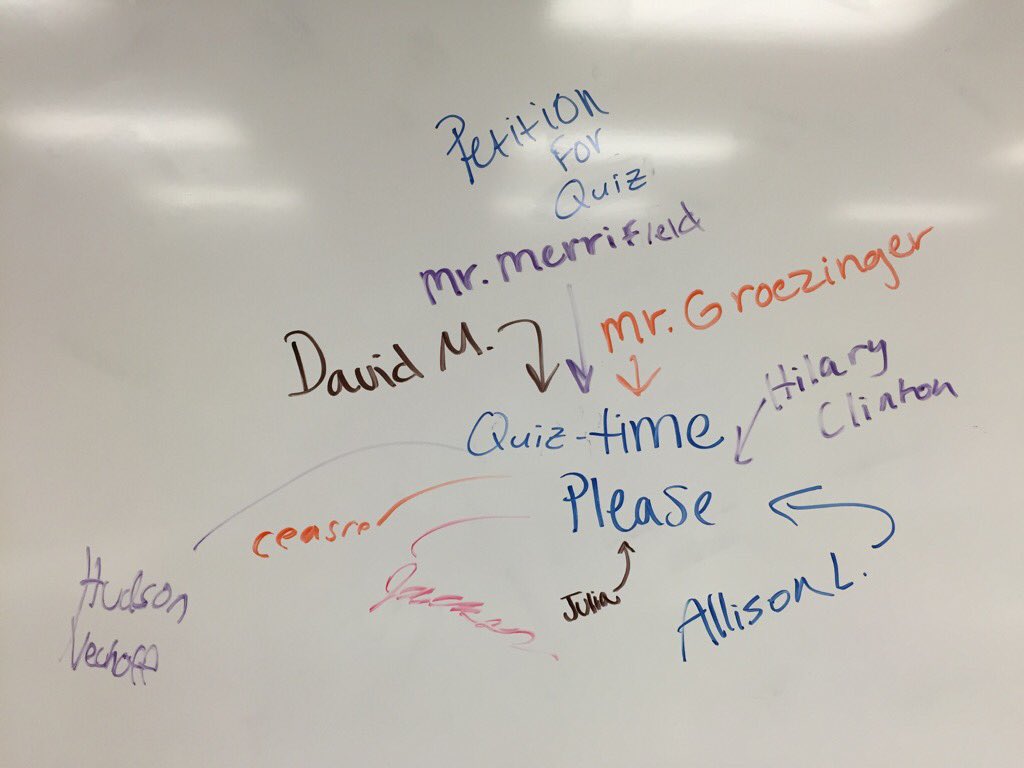 Petition
For
Quiz
mr. merrifield
mr. Groezinger
David M.
Hilary
Clinton
Quiz-time
Please
ceasre
Hudson
Julia
Allison L.